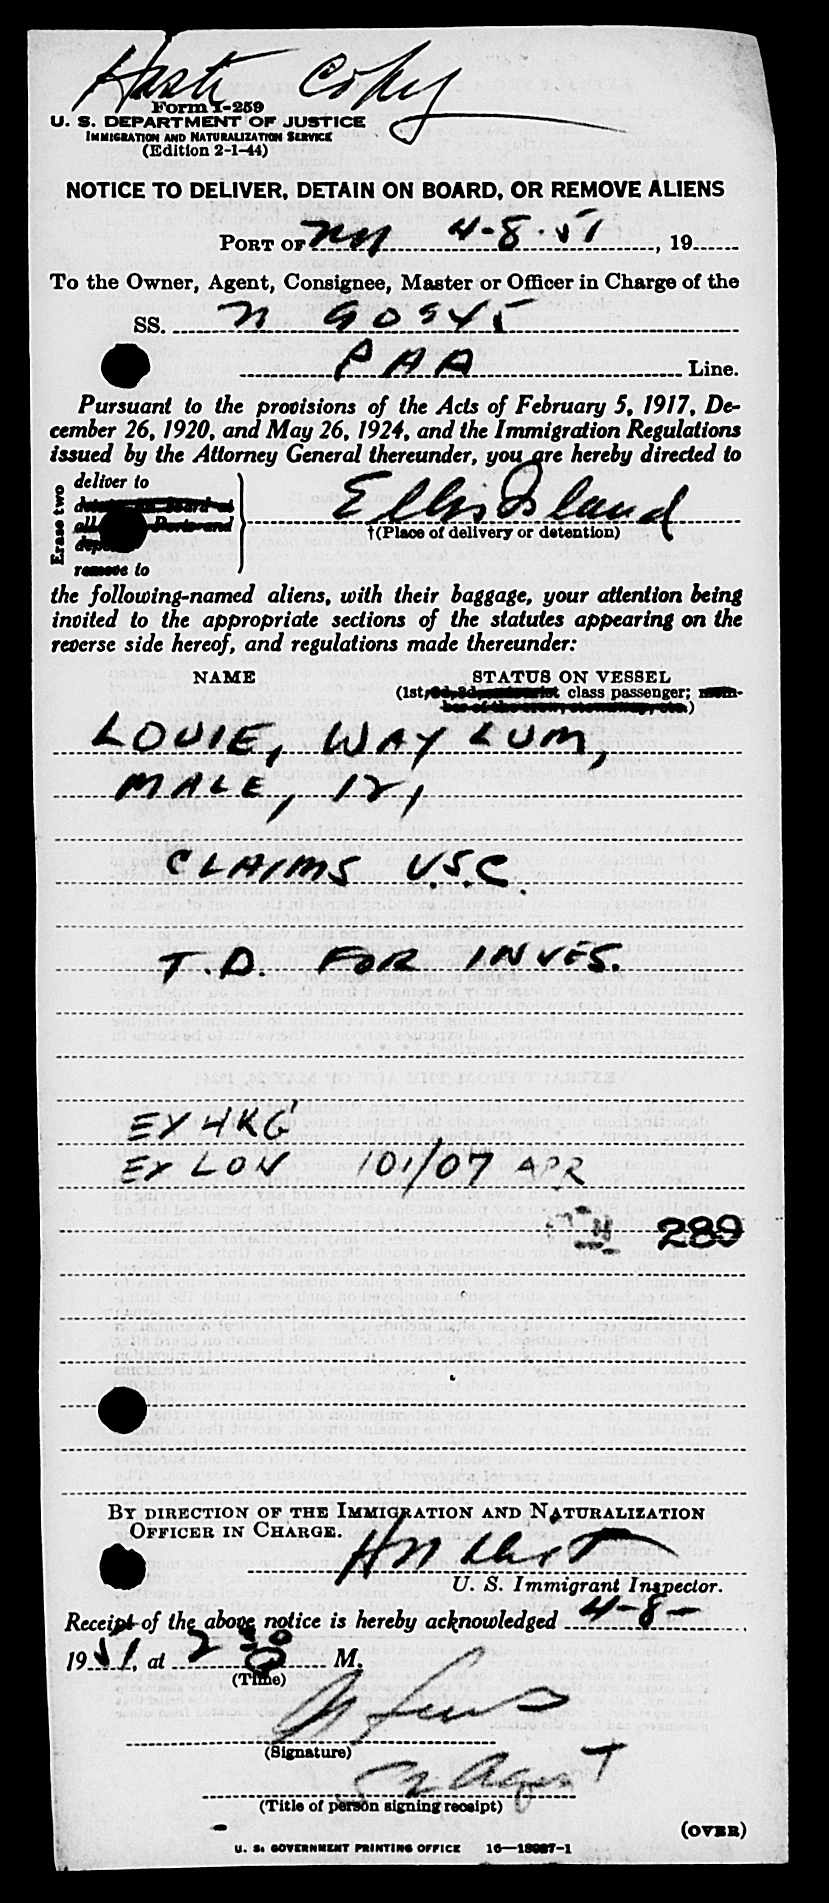 Copy
Form I-259
U. S. DEPARTMENT OF JUSTICE
IMMIGRATION AND NATURALIZATION SERVICE
(Edition 2-1-44)
NOTICE TO DELIVER, DETAIN ON BOARD, OR REMOVE ALIENS
PORT OF NY 4-8-51, 19
To the Owner, Agent, Consignee, Master or Officer in Charge of the
SS. N 90945
PAA Line.
Pursuant to the provisions of the Acts of February 5, 1917, De-
cember 26, 1920, and May 26, 1924, and the Immigration Regulations
issued by the Attorney General thereunder, you are hereby directed to
Erase two
deliver to
detain on board at
all Ports and
remove to
Ellis Island
†(Place of delivery or detention)
the following-named aliens, with their baggage, your attention being
invited to the appropriate sections of the statutes appearing on the
reverse side hereof, and regulations made thereunder:
NAME STATUS ON VESSEL
(1st, 2d, 3d, class passenger; mem-
ber of the crew, stowaway, etc.)
LOUIE, WAY LUM,
MALE, 12,
CLAIMS U.S.C.
T.D. FOR INVES.
EX HKG
EX LON 101/07 APR
289
BY DIRECTION OF THE IMMIGRATION AND NATURALIZATION
OFFICER IN CHARGE.
U. S. Immigrant Inspector.
Receipt of the above notice is hereby acknowledged 4-8-
1951, at 2 30 M.
(Time)
(Signature)
Agent
(Title of person signing receipt)
(OVER)
U. S. GOVERNMENT PRINTING OFFICE